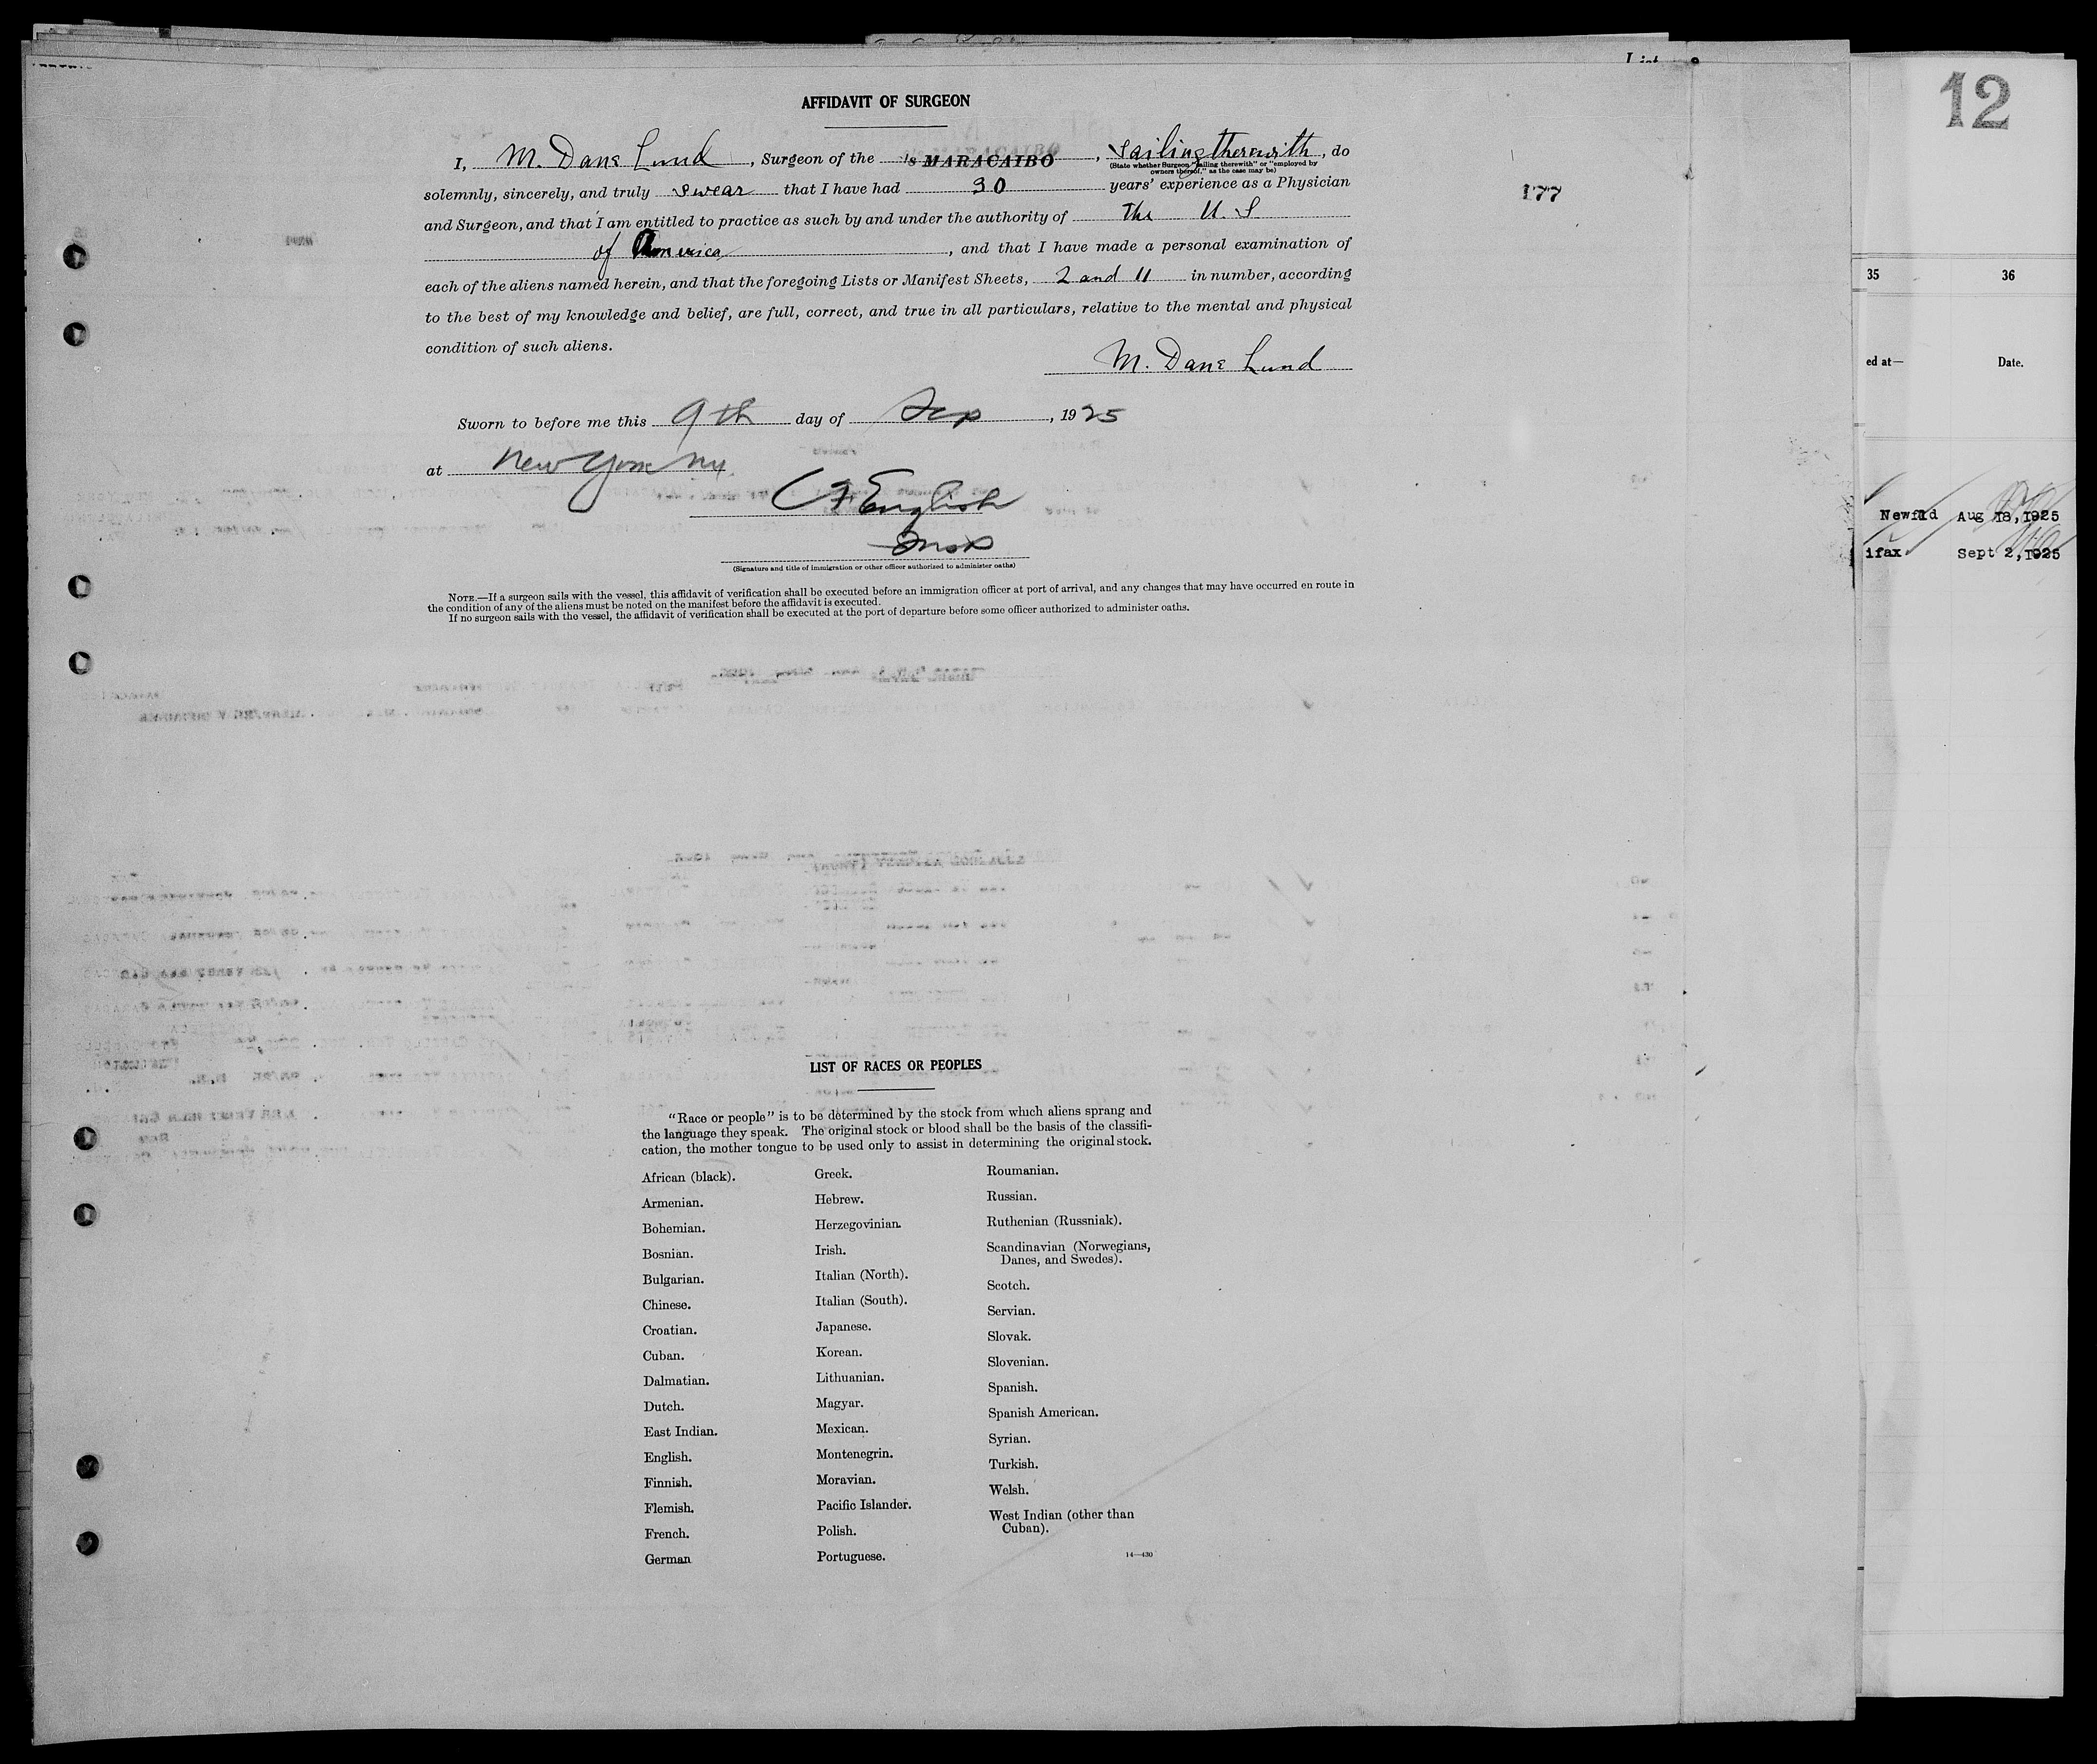 AFFIDAVIT OF SURGEON
I, M. Dane Lund, Surgeon of the s/s MARACAIBO, Sailing therewith, do
(State whether Surgeon "sailing therewith" or "employed by
owners thereof," as the case may be)
solemnly, sincerely, and truly swear that I have had 30 years' experience as a Physician
and Surgeon, and that I am entitled to practice as such by and under the authority of The U. S
of America, and that I have made a personal examination of
each of the aliens named herein, and that the foregoing Lists or Manifest Sheets, 2 and 11 in number, according
to the best of my knowledge and belief, are full, correct, and true in all particulars, relative to the mental and physical
condition of such aliens.
M. Dane Lund
Sworn to before me this 9th day of Sep, 1925
at New York NY.
English
Insp
(Signature and title of immigration or other officer authorized to administer oaths)
NOTE.—If a surgeon sails with the vessel, this affidavit of verification shall be executed before an immigration officer at port of arrival, and any changes that may have occurred en route in
the condition of any of the aliens must be noted on the manifest before the affidavit is executed.
If no surgeon sails with the vessel, the affidavit of verification shall be executed at the port of departure before some officer authorized to administer oaths.
LIST OF RACES OR PEOPLES
"Race or people" is to be determined by the stock from which aliens sprang and
the language they speak. The original stock or blood shall be the basis of the classifi-
cation, the mother tongue to be used only to assist in determining the original stock.
African (black).
Armenian.
Bohemian.
Bosnian.
Bulgarian.
Chinese.
Croatian.
Cuban.
Dalmatian.
Dutch.
East Indian.
English.
Finnish.
Flemish.
French.
German
Greek.
Hebrew.
Herzegovinian.
Irish.
Italian (North).
Italian (South).
Japanese.
Korean.
Lithuanian.
Magyar.
Mexican.
Montenegrin.
Moravian.
Pacific Islander.
Polish.
Portuguese.
Roumanian.
Russian.
Ruthenian (Russniak).
Scandinavian (Norwegians,
Danes, and Swedes).
Scotch.
Servian.
Slovak.
Slovenian.
Spanish.
Spanish American.
Syrian.
Turkish.
Welsh.
West Indian (other than
Cuban).
14—430
177
12
35 36
ed at— Date.
Newfld Aug 18, 1925
ifax Sept 2, 1925